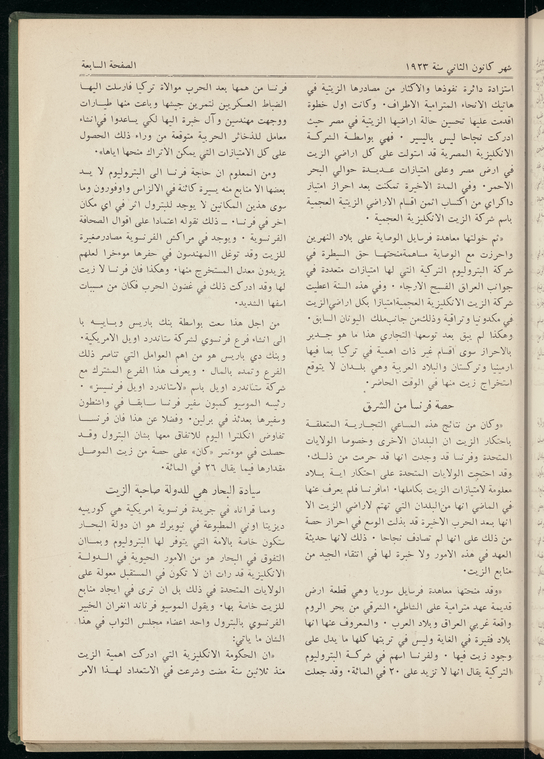 شهر كانون الثاني سنة ١٩٢٣
الصفحة السابعة
استزادة دائرة نفوذها والاكثار من مصادرها الزيتية في
هاتيك الانحاء المترامية الاطراف. وكانت اول خطوة
اقدمت عليها تحسين حالة اراضيها الزيتية في مصر حيث
ادركت نجاحا ليس باليسير. فهي بواسطة الشركة
الانكليزية المصرية قد استولت على كل اراضي الزيت
في ارض مصر وعلى امتيازات عديدة حوالي البحر
الاحمر. وفي المدة الاخيرة تمكنت بعد احراز امتياز
داكراي من اكتساب اثمن اقسام الاراضي الزيتية العجمية
باسم شركة الزيت الانكليزية العجمية.
«ثم خولتها معاهدة فرسايل الوصاية على بلاد النهرين
واحرزت مع الوصاية ساهمة منحتها حق السيطرة في
شركة البتروليوم التركية التي لها امتيازات متعددة في
جوانب العراق الفسيح الارجاء. وفي هذه السنة اعطيت
شركة الزيت الانكليزية العجمية امتيازا بكل اراضي الزيت
في مكدونيا وتراقية وذلك من جانب ملك اليونان السابق.
وهكذا لم يبق بعد توسعها التجاري هذا ما هو جدير
بالاحراز سوى اقسام غير ذات اهمية في تركيا بما فيها
ارمينيا وتركستان والبلاد العربية وهي بلدان لا يتوقع
استخراج زيت منها في الوقت الحاضر.
حصة فرنسا من الشرق
«وكان من نتائج هذه المساعي التجارية المتعلقة
باحتكار الزيت ان البلدان الاخرى وخصوصا الولايات
المتحدة وفرنسا قد وجدت انها قد حرمت من ذلك.
وقد احتجت الولايات المتحدة على احتكار اية بلاد
معلومة لامتيازات الزيت بكاملها. اما فرنسا فلم يعرف عنها
في الماضي انها من البلدان التي تهتم لاراضي الزيت الا
انها بعد الحرب الاخيرة قد بذلت الوسع في احراز حصة
من ذلك على انها لم تصادف نجاحا. ذلك لانها حديثة
العهد في هذه الامور ولا خبرة لها في انتقاء الجيد من
منابع الزيت.
«وقد منحتها معاهدة فرسايل سوريا وهي قطعة ارض
قديمة عهد مترامية على الشاطىء الشرقي من بحر الروم
واقعة غربي العراق وبلاد العرب. والمعروف عنها انها
بلاد فقيرة في الغابة وليس في تربتها كلها ما يدل على
وجود زيت فيها. ولفرنسا اسهم في شركة البتروليوم
التركية يقال انها لا تزيد على ٢٠ في المائة. وقد جعلت
فرنسا من همها بعد الحرب موالاة تركيا فارسلت اليها
الضباط العسكريين لتمرين جيشها وباعت منها طيارات
ووجهت مهندسين وآل خبرة اليها لكي يساعدوا في انشاء
معامل للذخائر الحربية متوقعة من وراء ذلك الحصول
على كل الامتيازات التي يمكن الاتراك منحها اياها».
ومن المعلوم ان حاجة فرنسا الى البتروليوم لا يسد
بعضها الا منابع منه يسيرة كائنة في الالزاس واوفورون وما
سوى هذين المكانين لا يوجد للبترول اثر في اي مكان
اخر في فرنسا. ــ ذلك نقوله اعتمادا على اقوال الصحافة
الفرنسوية. ويوجد في مراكش الفرنسوية مصادر صغيرة
للزيت وقد توغل االمهندسون في حفرها موءخرا لعلهم
يزيدون معدل المستخرج منها. وهكذا فان فرنسا لا زيت
لها وقد ادركت ذلك في غضون الحرب فكان من مسببات
اسفها الشديد.
من اجل هذا سعت بواسطة بنك باريس وبايبه با
الى انشاء فرع فرنسوي لشركة ستاندرد اويل الامريكية.
وبنك دي باريس هو من اهم العوامل التي تناصر ذلك
الفرع وتمده بالمال. ويعرف هذا الفرع المشترك مع
شركة ستاندرد اويل باسم «لاستاندرد اويل فرنسيسز».
رئيسه الموسيو كمبون سفير فرنسا سابقا في واشنطون
وسفيرها بعدئذ في برلين. وفضلا عن هذا فان فرنسا
تفاوض انكلترا اليوم للاتفاق معها بشان البترول وقد
حصلت في موءتمر «كان» على حصة من زيت الموصل
مقدارها فيما يقال ٢٦ في المائة.
سيادة البحار هي للدولة صاحبة الزيت
ومما قراناه في جريدة فرنسوية امريكية هي كورييه
ديزيتا اوني المطبوعة في نيويرك هو ان دولة البحار
ستكون خاصة بالامة التي يتوفر لها البتروليوم وبما ان
التفوق في البحار هو من الامور الحيوية في الدولة
الانكليزية قد رات ان لا تكون في المستقبل معولة على
الولايات المتحدة في ذلك بل ان ترى في ايجاد منابع
للزيت خاصة بها. ويقول الموسيو فرناند انغران الخبير
الفرنسوي بالبترول واحد اعضاء مجلس النواب في هذا
الشان ما ياتي:
«ان الحكومة الانكليزية التي ادركت اهمية الزيت
منذ ثلاثين سنة مضت وشرعت في الاستعداد لهذا الامر